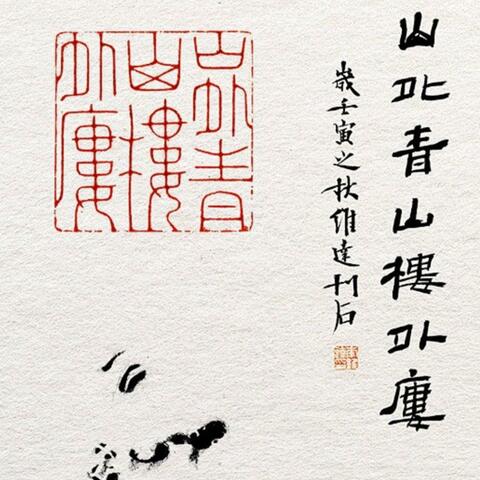 山外青山樓外廔
歲壬寅之秋維達刊石
山外青
山樓
外廔